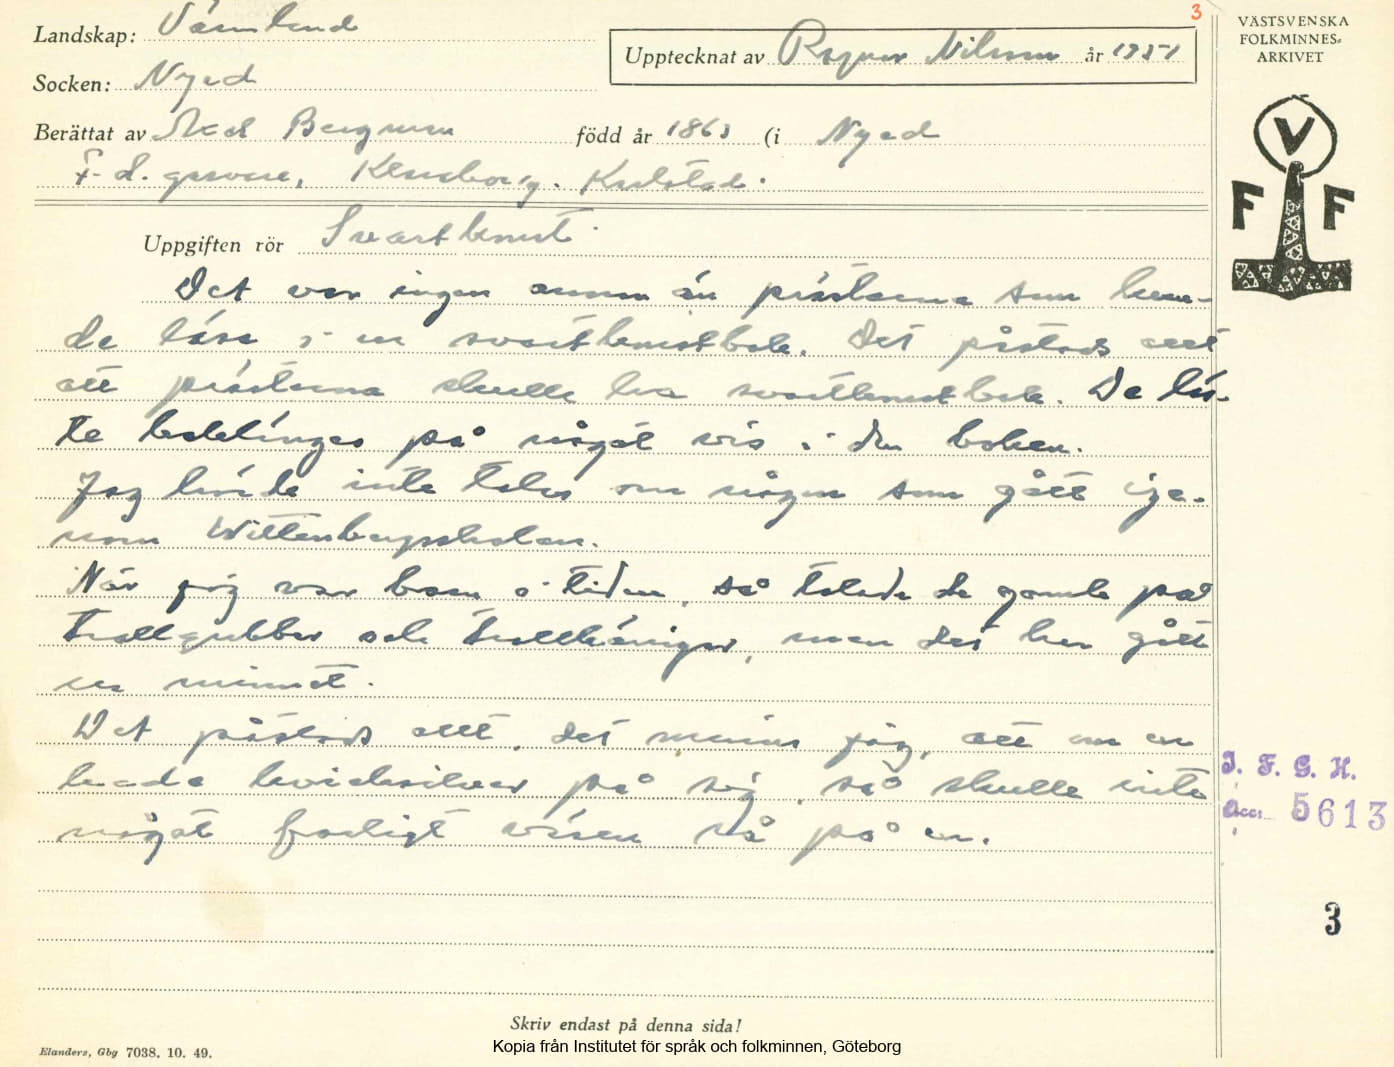 3
Landskap: Värmland
Upptecknat av Ragnar Nilsson år 1951
VÄSTSVENSKA
FOLKMINNES-
ARKIVET
Socken: Nyed
Berättat av Axel Bergman född år 1863 (i Nyed
F.d. Karlstad.
V
F F
Uppgiften rör Svartkonst
Det var ingen annan än prästerna som kun-
de läsa i en svartkonstbok. Det påstods allt
att prästerna skulle ha svartkonstbok. De läs-
te baklänges på något vis i den boken.
Jag hörde inte talas om någon som gått ige-
nom Wittenbergsskolan.
När jag var barn i tiden, så talade de gamla på
trollgubbar och trollkäringar, men det har gått
ur minnet.
Det påstods allt, det minns jag, att om en
hade kvicksilver på sig, så skulle inte
något farligt väsen rå på en.
I. F. G. H.
Acc: 5613
3
Skriv endast på denna sida!
Elanders, Gbg 7038. 10. 49.
Kopia från Institutet för språk och folkminnen, Göteborg